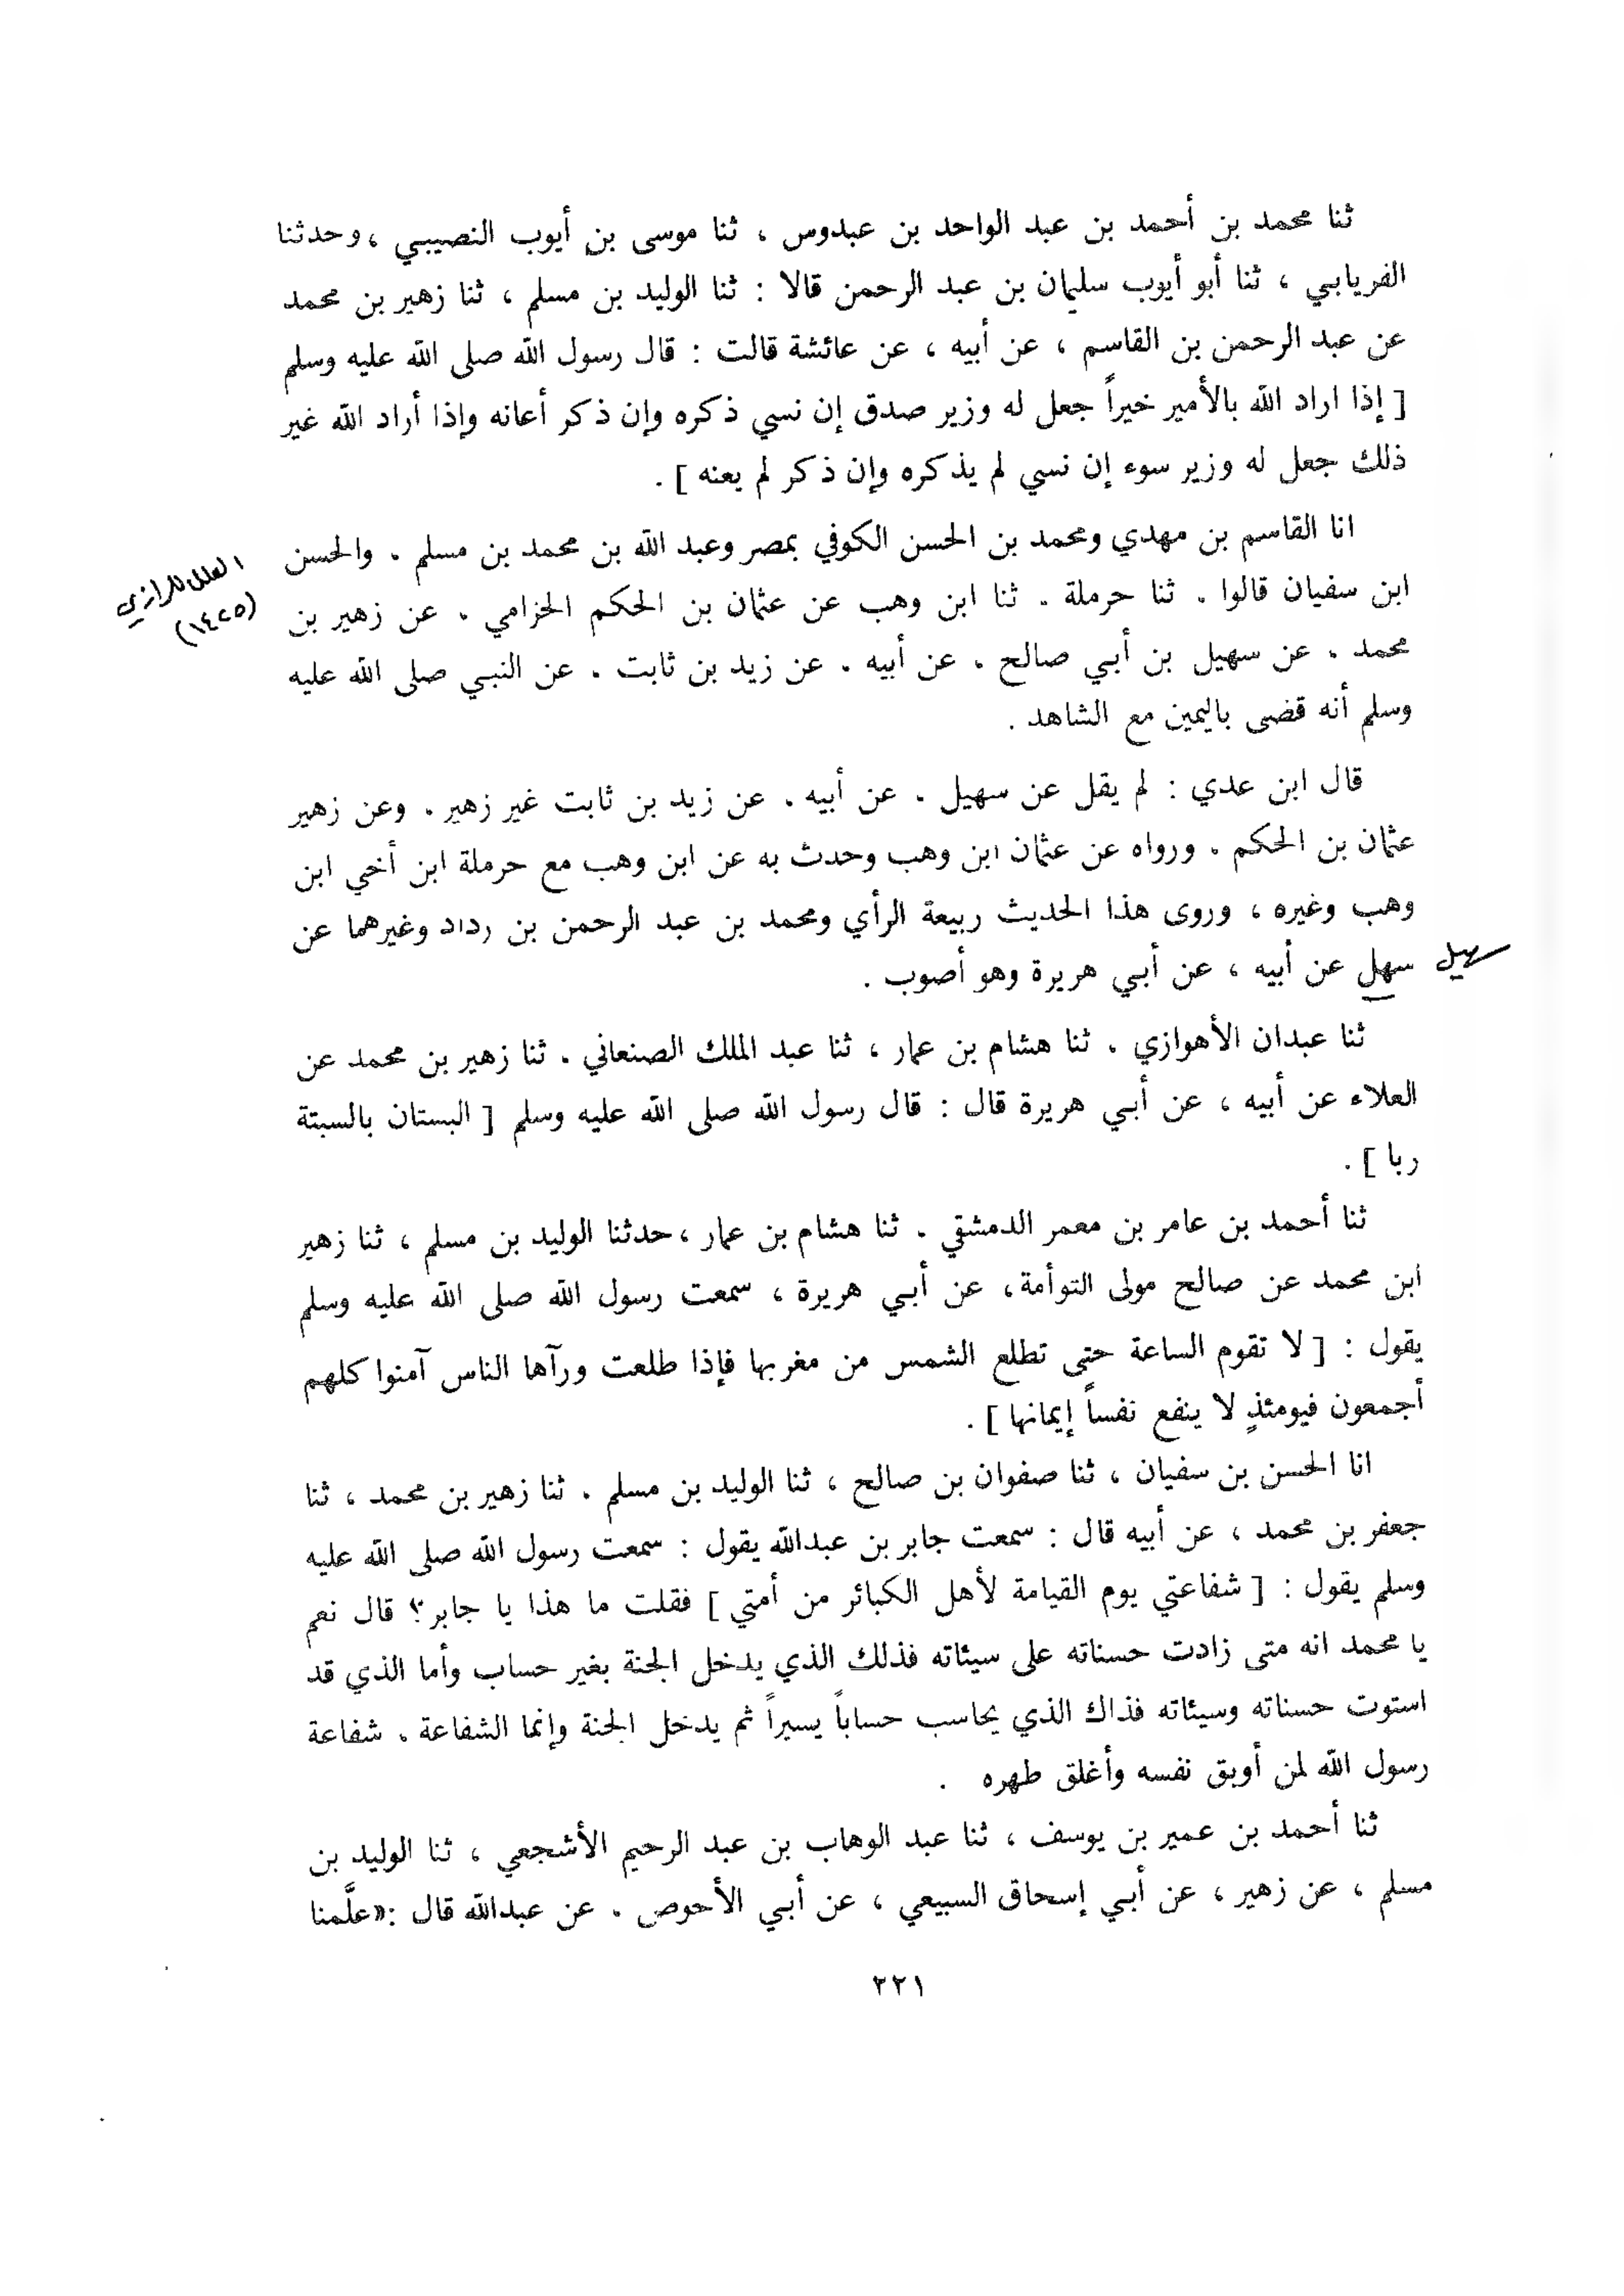 ثنا محمد بن أحمد بن عبد الواحد بن عبدوس ، ثنا موسى بن أيوب النصيبي ، وحدثنا
الفريابي ، ثنا أبو أيوب سليمان بن عبد الرحمن قالا : ثنا الوليد بن مسلم ، ثنا زهير بن محمد
عن عبد الرحمن بن القاسم ، عن أبيه ، عن عائشة قالت : قال رسول الله صلى الله عليه وسلم
[ إذا اراد الله بالأمير خيراً جعل له وزير صدق إن نسي ذكره وإن ذكر أعانه وإذا أراد الله غير
ذلك جعل له وزير سوء إن نسي لم يذكره وإن ذكر لم يعنه ] .
انا القاسم بن مهدي ومحمد بن الحسن الكوفي بمصر وعبد الله بن محمد بن مسلم . والحسن
العلل للرازي
(١٤٢٥)
ابن سفيان قالوا . ثنا حرملة . ثنا ابن وهب عن عثمان بن الحكم الحزامي . عن زهير بن
محمد . عن سهيل بن أبي صالح . عن أبيه . عن زيد بن ثابت . عن النبي صلى الله عليه
وسلم أنه قضى باليمين مع الشاهد .
قال ابن عدي : لم يقل عن سهيل . عن أبيه . عن زيد بن ثابت غير زهير . وعن زهير
عثمان بن الحكم . ورواه عن عثمان ابن وهب وحدث به عن ابن وهب مع حرملة ابن أخي ابن
وهب وغيره ، وروى هذا الحديث ربيعة الرأي ومحمد بن عبد الرحمن بن رداد وغيرهما عن
سهيل
سهل عن أبيه ، عن أبي هريرة وهو أصوب .
ثنا عبدان الأهوازي . ثنا هشام بن عمار ، ثنا عبد الملك الصنعاني . ثنا زهير بن محمد عن
العلاء عن أبيه ، عن أبي هريرة قال : قال رسول الله صلى الله عليه وسلم [ البستان بالسبتة
ربا ] .
ثنا أحمد بن عامر بن معمر الدمشقي . ثنا هشام بن عمار ، حدثنا الوليد بن مسلم ، ثنا زهير
ابن محمد عن صالح مولى التوأمة ، عن أبي هريرة ، سمعت رسول الله صلى الله عليه وسلم
يقول : [ لا تقوم الساعة حتى تطلع الشمس من مغربها فإذا طلعت ورآها الناس آمنوا كلهم
أجمعون فيومئذٍ لا ينفع نفساً إيمانها ] .
انا الحسن بن سفيان ، ثنا صفوان بن صالح ، ثنا الوليد بن مسلم . ثنا زهير بن محمد ، ثنا
جعفر بن محمد ، عن أبيه قال : سمعت جابر بن عبدالله يقول : سمعت رسول الله صلى الله عليه
وسلم يقول : [ شفاعتي يوم القيامة لأهل الكبائر من أمتي ] فقلت ما هذا يا جابر ؟ قال نعم
يا محمد انه متى زادت حسناته على سيئاته فذلك الذي يدخل الجنة بغير حساب وأما الذي قد
استوت حسناته وسيئاته فذاك الذي يحاسب حساباً يسيراً ثم يدخل الجنة وإنما الشفاعة . شفاعة
رسول الله لمن أوبق نفسه وأغلق طهره .
ثنا أحمد بن عمير بن يوسف ، ثنا عبد الوهاب بن عبد الرحيم الأشجعي ، ثنا الوليد بن
مسلم ، عن زهير ، عن أبي إسحاق السبيعي ، عن أبي الأحوص . عن عبدالله قال :«علَّمنا
٢٢١